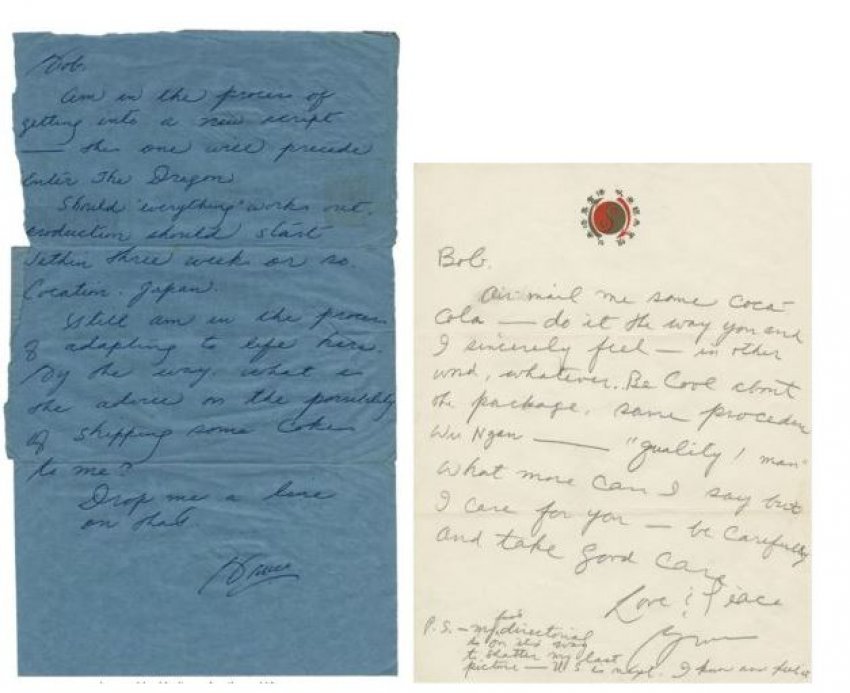 Bob,
Am in the process of
getting into a new script
— this one will precede
Enter The Dragon
Should 'everything' works out,
production should start
within three week or so.
Location. Japan.
Still am in the process
of adapting to life here.
By the way, what is
the advice on the possibility
of shipping some Coke
to me?
Drop me a line
on that
Bruce
Bob,
Air mail me some Coca-
Cola — do it the way you and
I sincerely feel — in other
word, whatever. Be Cool about
the package, same procedure
Wu Ngan — "quality, man"
What more can I say but
I care for you — be Carefully
and take good Care
Love & Peace
Bruce
P.S. — my directorial
is on its way
to shatter my last
picture — U.S. is next. I